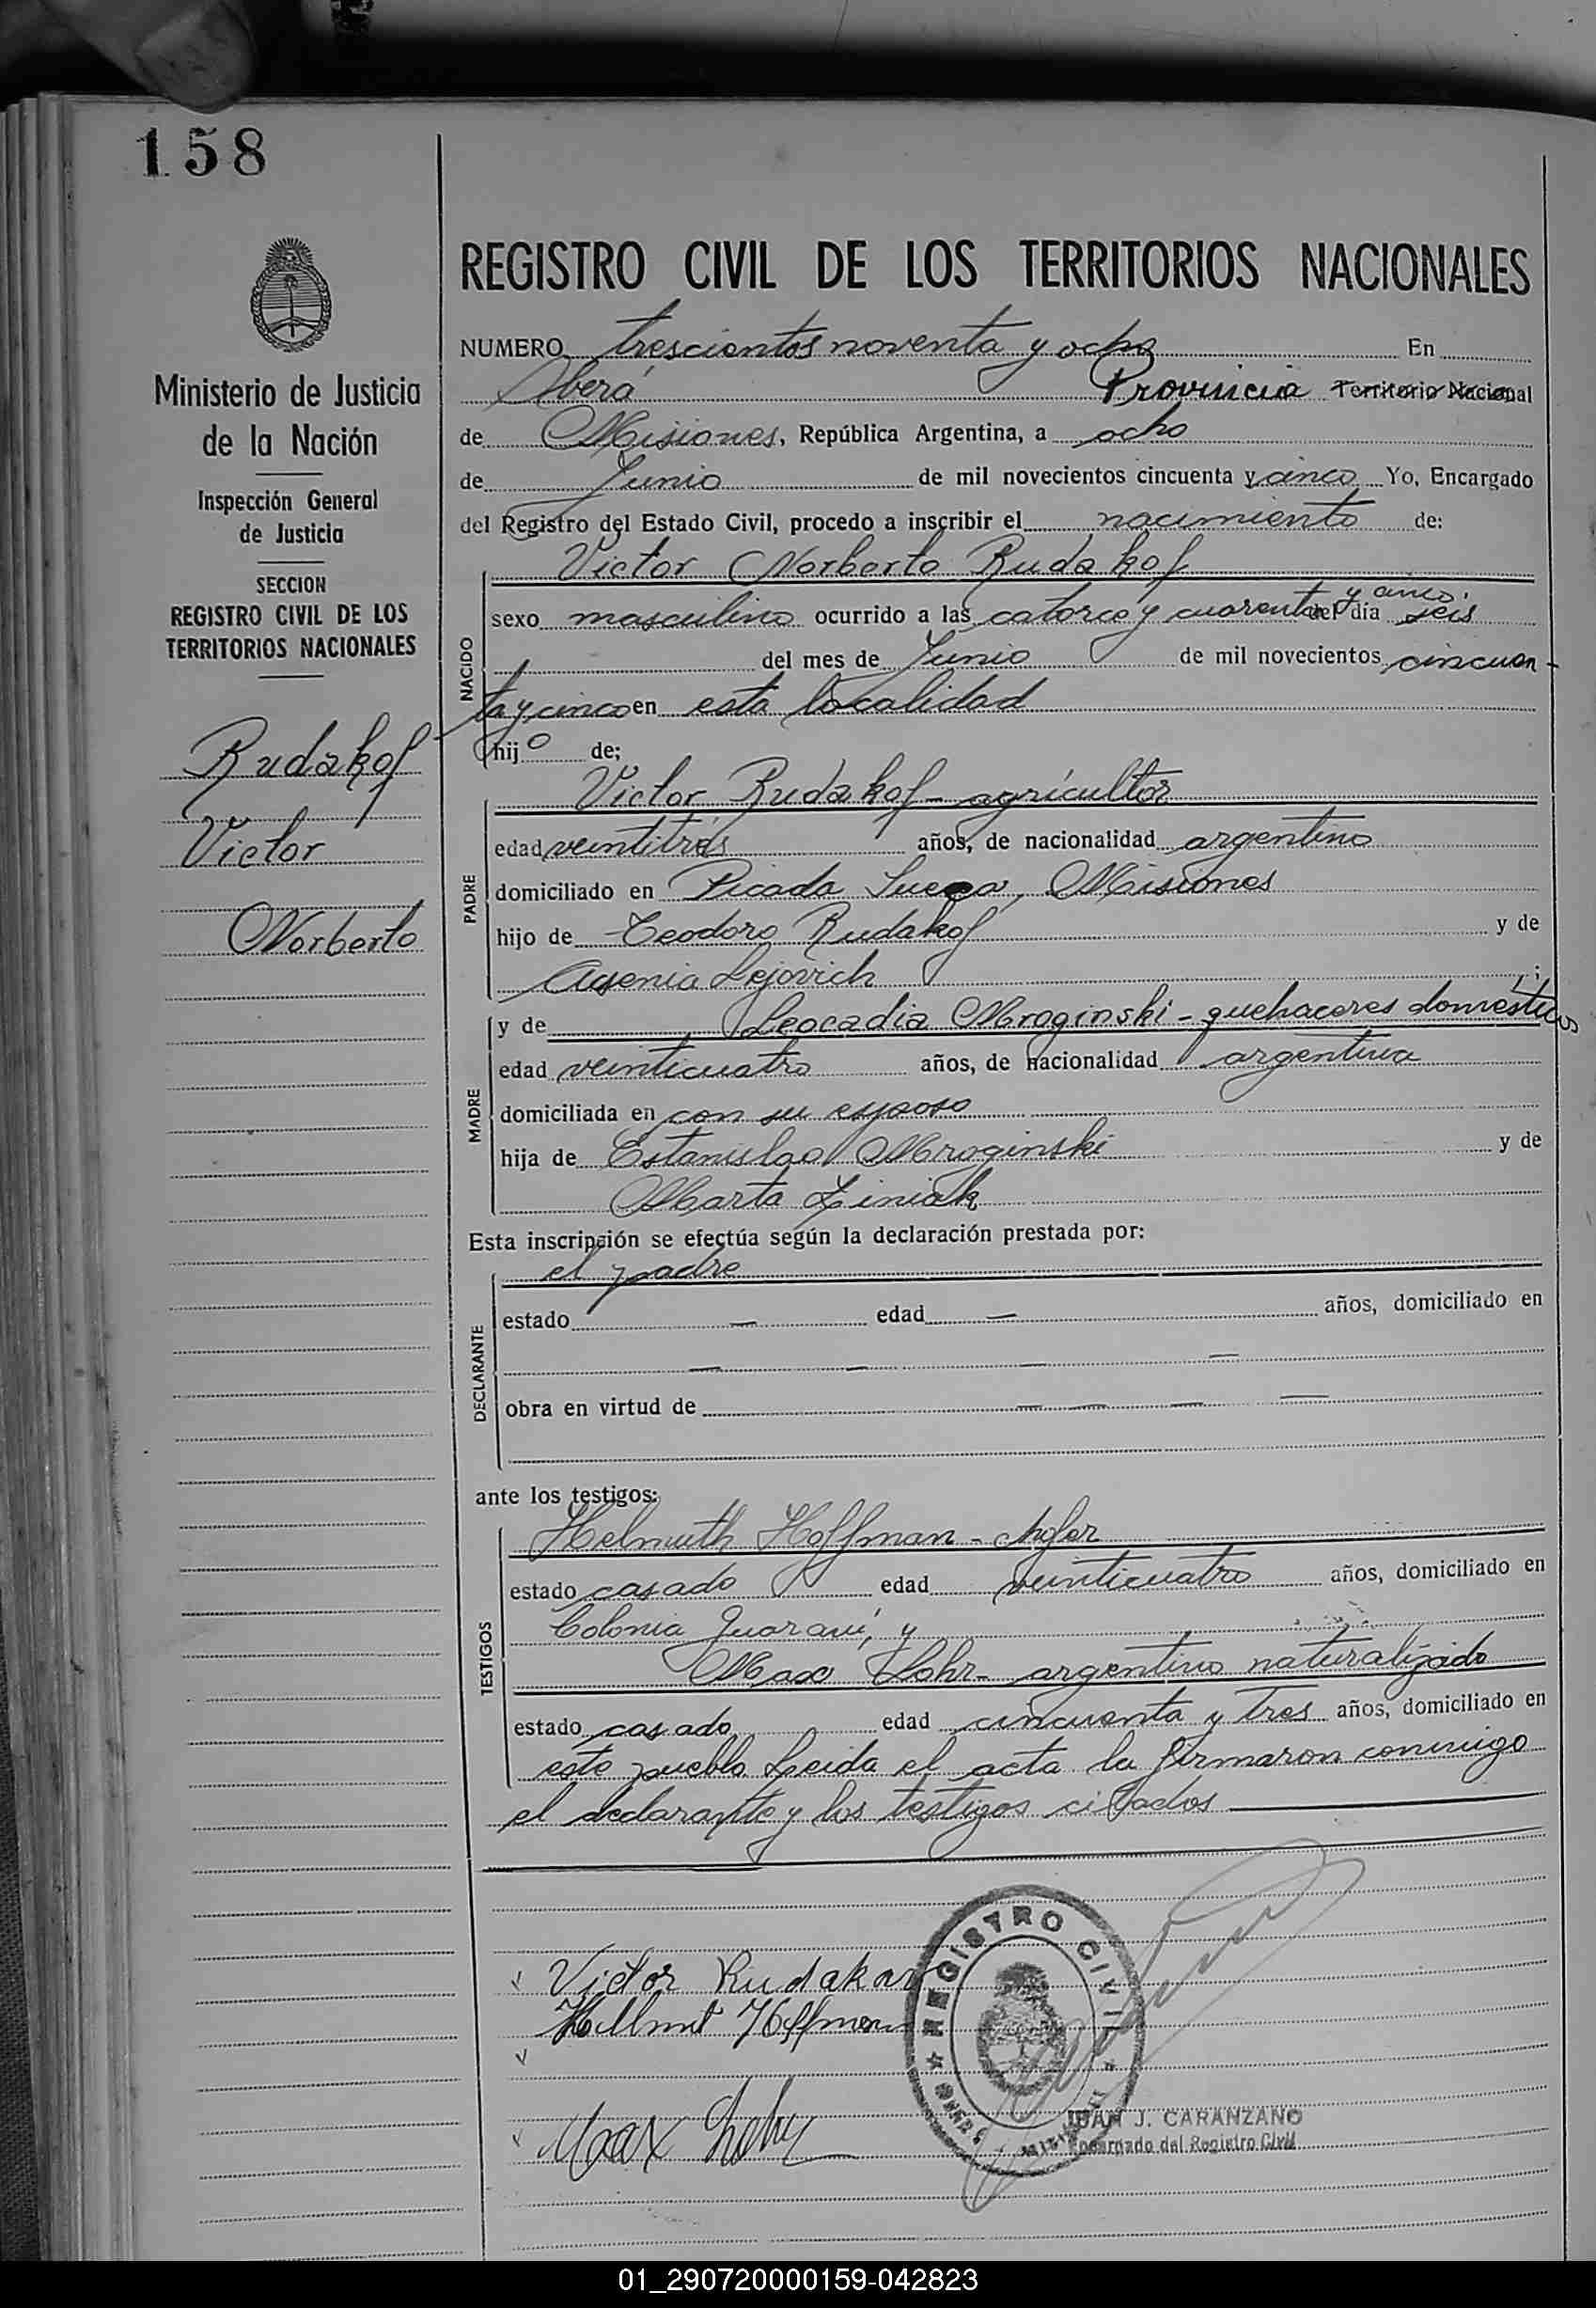 158
Ministerio de Justicia
de la Nación
Inspección General
de Justicia
SECCION
REGISTRO CIVIL DE LOS
TERRITORIOS NACIONALES
Rudakof
Victor
Norberto
REGISTRO CIVIL DE LOS TERRITORIOS NACIONALES
NUMERO trescientos noventa y ocho En
Oberá Provincia Territorio Nacional
de Misiones, República Argentina, a ocho
de Junio de mil novecientos cincuenta y cinco Yo, Encargado
del Registro del Estado Civil, procedo a inscribir el nacimiento de:
Victor Norberto Rudakof
NACIDO
y cinco
sexo masculino ocurrido a las catorce y cuarenta del día seis
del mes de Junio de mil novecientos cincuen-
ta y cinco en esta localidad
hijo de;
Victor Rudakof - agricultor
PADRE
edad veintitrés años, de nacionalidad argentino
domiciliado en Picada Sueca, Misiones
hijo de Teodoro Rudakof y de
Lejovich ;
MADRE
y de Leocadia Mroginski - quehaceres domésticos
edad veinticuatro años, de nacionalidad argentina
domiciliada en con su esposo
hija de Estanislao Mroginski y de
Marta Ziniak
Esta inscripción se efectúa según la declaración prestada por:
el padre
DECLARANTE
estado — edad — años, domiciliado en
— — — —
obra en virtud de — — — —
ante los testigos:
Helmuth Hoffman - chofer
TESTIGOS
estado casado edad veinticuatro años, domiciliado en
Colonia Guaraní, y
Max - argentino naturalizado
estado casado edad cincuenta y tres años, domiciliado en
este pueblo. Leida el acta la firmaron conmigo
el declarante y los testigos citados
Victor Rudakov
Hoffmann
Max
REGISTRO CIVIL
JUAN J. CARANZANO
Encargado del Registro Civil
01_290720000159-042823